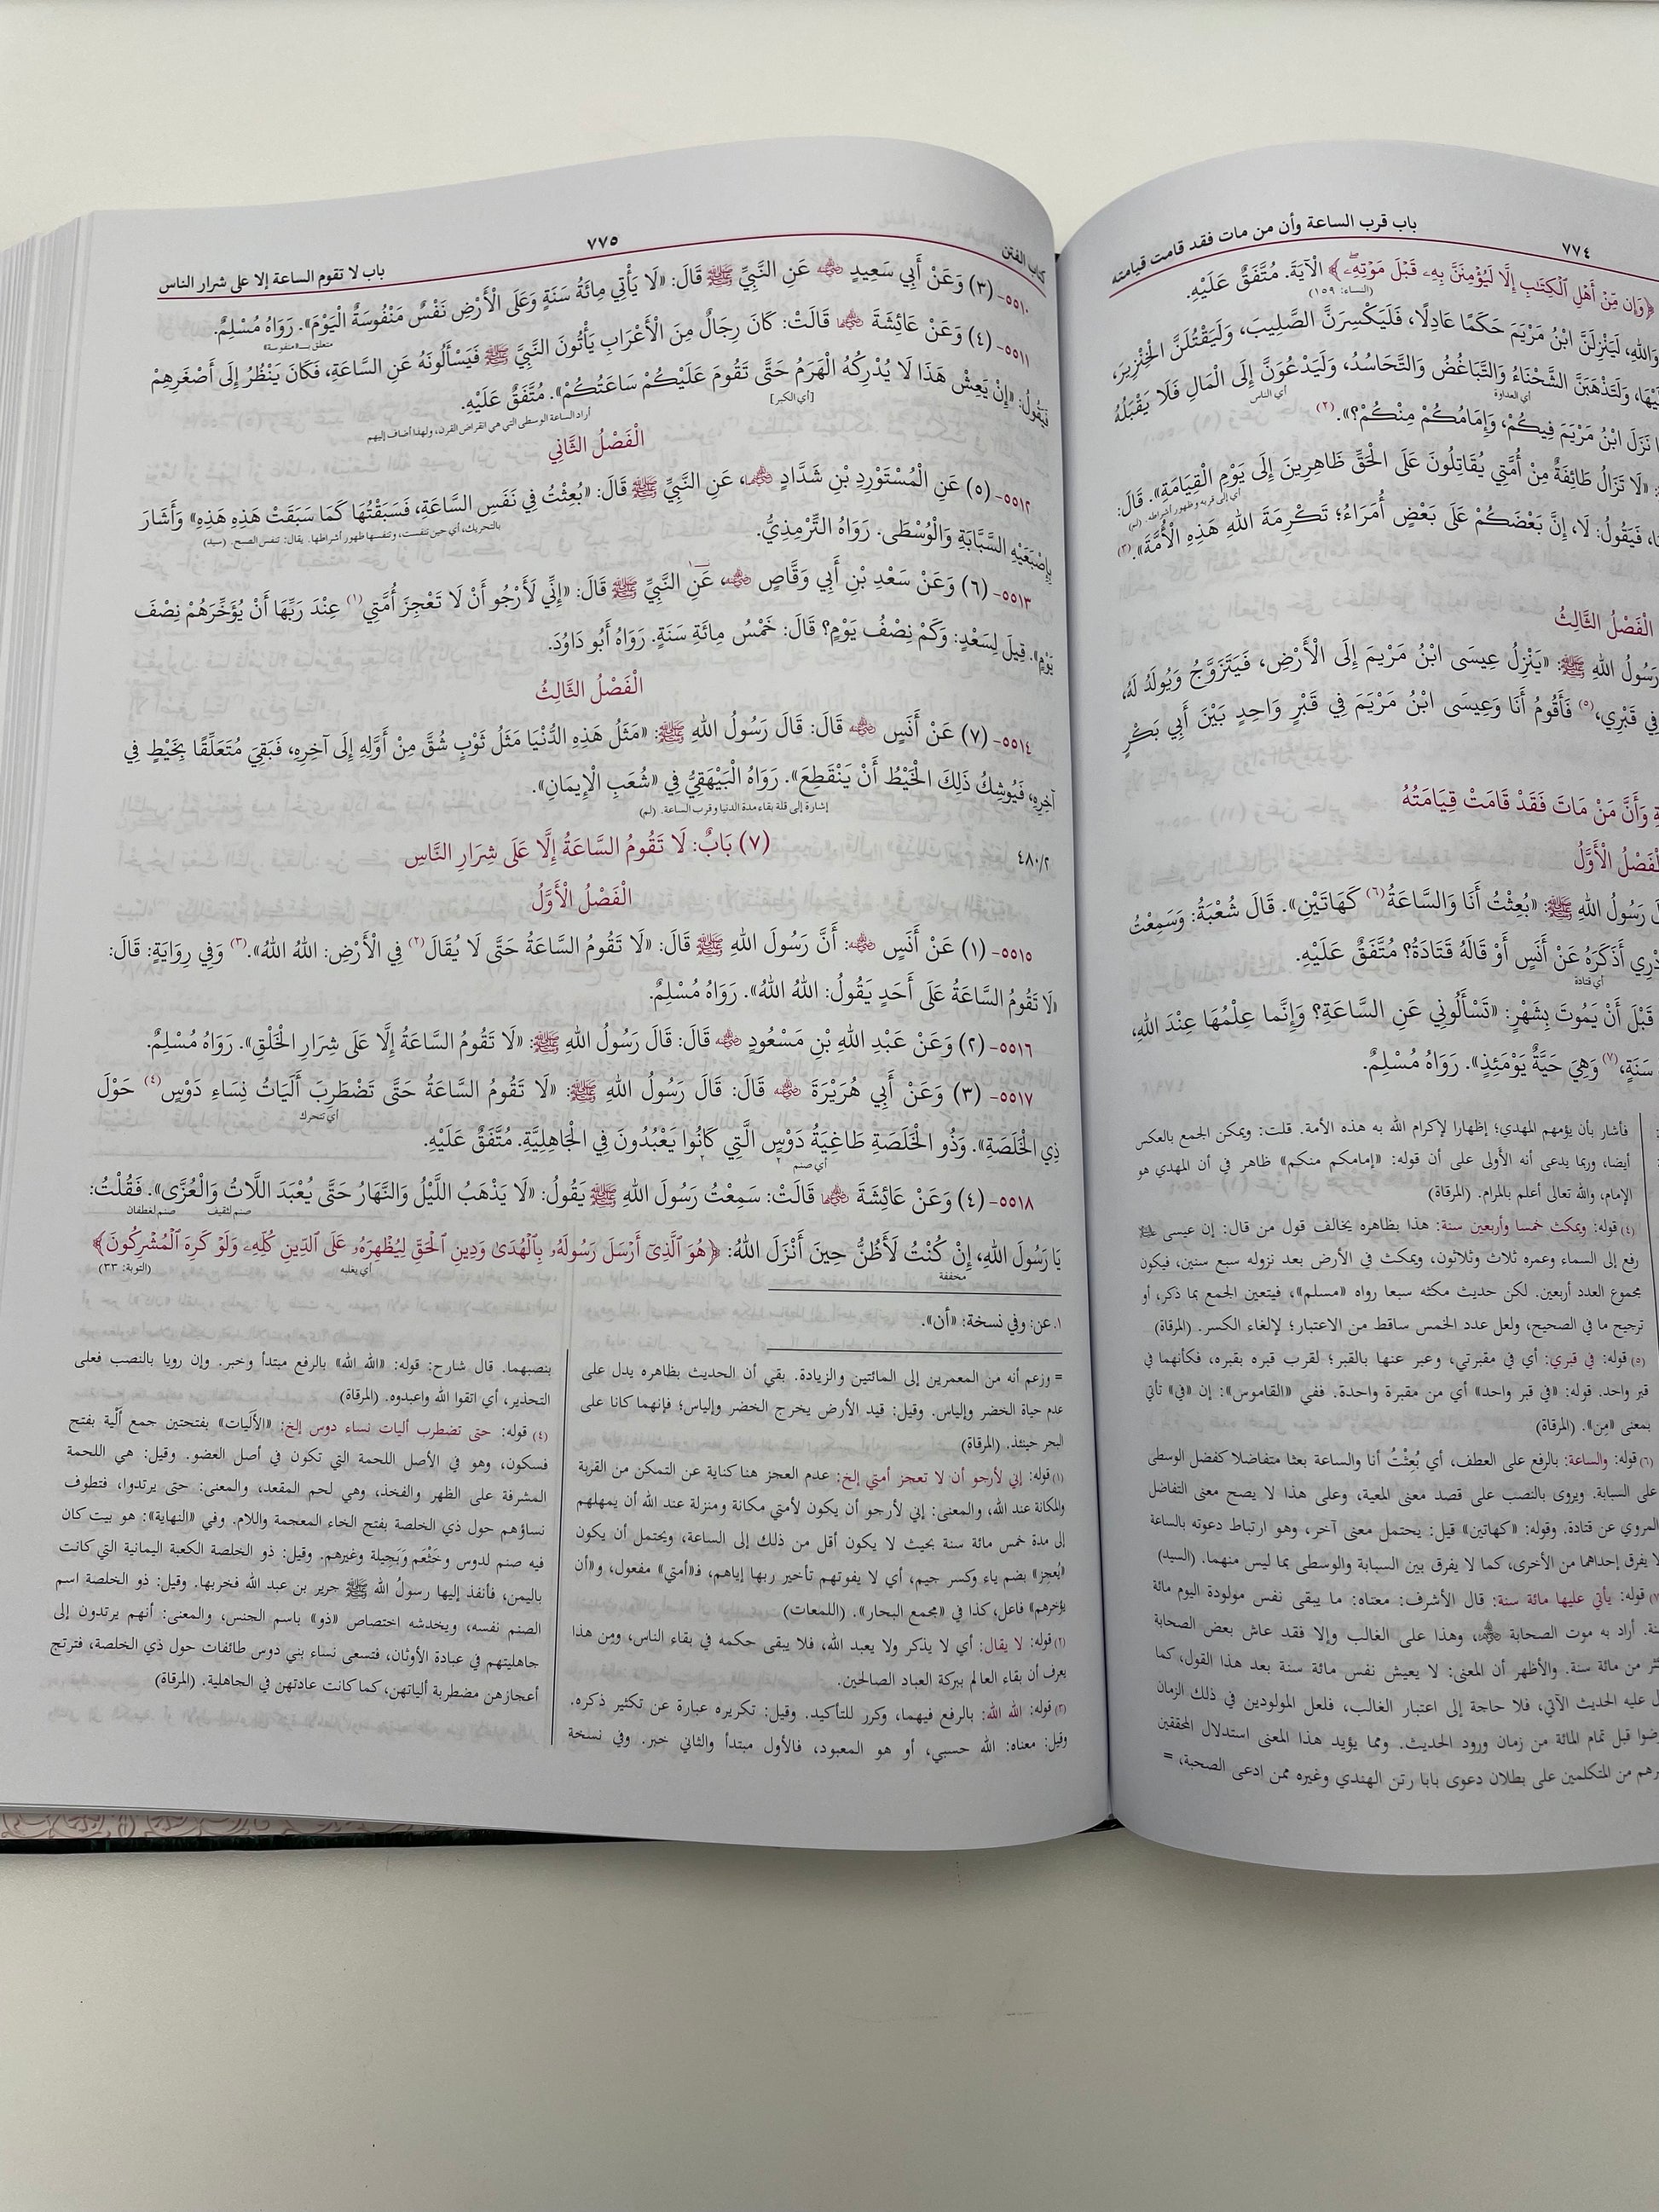 باب قرب الساعة وأن من مات فقد قامت قيامته
٧٧٤
﴿وَإِن مِّنْ أَهْلِ ٱلْكِتَٰبِ إِلَّا لَيُؤْمِنَنَّ بِهِۦ قَبْلَ مَوْتِهِۦ﴾ الْآيَةَ. مُتَّفَقٌ عَلَيْهِ.
(النساء: ١٥٩)
وَاللهِ، لَيَنْزِلَنَّ ابْنُ مَرْيَمَ حَكَمًا عَادِلًا، فَلَيَكْسِرَنَّ الصَّلِيبَ، وَلَيَقْتُلَنَّ الْخِنْزِيرَ،
وَلَتَذْهَبَنَّ الشَّحْنَاءُ وَالتَّبَاغُضُ وَالتَّحَاسُدُ، وَلَيَدْعُوَنَّ إِلَى الْمَالِ فَلَا يَقْبَلُهُ
أي العداوة أي الناس
نَزَلَ ابْنُ مَرْيَمَ فِيكُمْ، وَإِمَامُكُمْ مِنْكُمْ؟». (٢)
«لَا تَزَالُ طَائِفَةٌ مِنْ أُمَّتِي يُقَاتِلُونَ عَلَى الْحَقِّ ظَاهِرِينَ إِلَى يَوْمِ الْقِيَامَةِ». قَالَ:
أي إلى قربه وظهور أشراطه. (لم)
فَيَقُولُ: لَا، إِنَّ بَعْضَكُمْ عَلَى بَعْضٍ أُمَرَاءُ؛ تَكْرِمَةَ اللهِ هَذِهِ الْأُمَّةَ». (٣)
الْفَصْلُ الثَّالِثُ
رَسُولُ اللهِ ﷺ: «يَنْزِلُ عِيسَى ابْنُ مَرْيَمَ إِلَى الْأَرْضِ، فَيَتَزَوَّجُ وَيُولَدُ لَهُ،
فِي قَبْرِي، (٥) فَأَقُومُ أَنَا وَعِيسَى ابْنُ مَرْيَمَ فِي قَبْرٍ وَاحِدٍ بَيْنَ أَبِي بَكْرٍ
وَأَنَّ مَنْ مَاتَ فَقَدْ قَامَتْ قِيَامَتُهُ
الْفَصْلُ الْأَوَّلُ
رَسُولُ اللهِ ﷺ: «بُعِثْتُ أَنَا وَالسَّاعَةُ (٦) كَهَاتَيْنِ». قَالَ شُعْبَةُ: وَسَمِعْتُ
أَذَكَرَهُ عَنْ أَنَسٍ أَوْ قَالَهُ قَتَادَةُ؟ مُتَّفَقٌ عَلَيْهِ.
أي قتادة
قَبْلَ أَنْ يَمُوتَ بِشَهْرٍ: «تَسْأَلُونِي عَنِ السَّاعَةِ؟ وَإِنَّمَا عِلْمُهَا عِنْدَ اللهِ،
سَنَةٍ، (٧) وَهِيَ حَيَّةٌ يَوْمَئِذٍ». رَوَاهُ مُسْلِمٌ.
فأشار بأن يؤمهم المهدي؛ إظهارا لإكرام الله به هذه الأمة. قلت: ويمكن الجمع بالعكس
أيضا، وربما يدعى أنه الأولى على أن قوله: «إمامكم منكم» ظاهر في أن المهدي هو
الإمام، والله تعالى أعلم بالمرام. (المرقاة)
(٤) قوله: ويمكث خمسا وأربعين سنة: هذا بظاهره يخالف قول من قال: إن عيسى
رفع إلى السماء وعمره ثلاث وثلاثون، ويمكث في الأرض بعد نزوله سبع سنين، فيكون
مجموع العدد أربعين. لكن حديث مكثه سبعا رواه «مسلم»، فيتعين الجمع بما ذكر، أو
ترجيح ما في الصحيح، ولعل عدد الخمس ساقط من الاعتبار؛ لإلغاء الكسر. (المرقاة)
(٥) قوله: في قبري: أي في مقبرتي، وعبر عنها بالقبر؛ لقرب قبره بقبره، فكأنهما في
قبر واحد. قوله: «في قبر واحد» أي من مقبرة واحدة. ففي «القاموس»: إن «في» تأتي
بمعنى «من». (المرقاة)
(٦) قوله: والساعة: بالرفع على العطف، أي بُعِثْتُ أنا والساعة بعثا متفاضلا كفضل الوسطى
على السبابة. ويروى بالنصب على قصد معنى المعية، وعلى هذا لا يصح معنى التفاضل
المروي عن قتادة. وقوله: «كهاتين» قيل: يحتمل معنى آخر، وهو ارتباط دعوته بالساعة
لا يفرق إحداهما من الأخرى، كما لا يفرق بين السبابة والوسطى بما ليس منهما. (السيد)
قوله: يأتي عليها مائة سنة: قال الأشرف: معناه: ما يبقى نفس مولودة اليوم مائة
أراد به موت الصحابة، وهذا على الغالب وإلا فقد عاش بعض الصحابة
من مائة سنة. والأظهر أن المعنى: لا يعيش نفس مائة سنة بعد هذا القول، كما
عليه الحديث الآتي، فلا حاجة إلى اعتبار الغالب، فلعل المولودين في ذلك الزمان
قبل تمام المائة من زمان ورود الحديث. ومما يؤيد هذا المعنى استدلال المحققين
من المتكلمين على بطلان دعوى بابا رتن الهندي وغيره ممن ادعى الصحبة، =
كتاب الفتن
٧٧٥
باب لا تقوم الساعة إلا على شرار الناس
٥٥١٠- (٣) وَعَنْ أَبِي سَعِيدٍ ﷺ عَنِ النَّبِيِّ ﷺ قَالَ: «لَا يَأْتِي مِائَةُ سَنَةٍ وَعَلَى الْأَرْضِ نَفْسٌ مَنْفُوسَةٌ الْيَوْمَ». رَوَاهُ مُسْلِمٌ.
متعلق بـ«منفوسة»
٥٥١١- (٤) وَعَنْ عَائِشَةَ قَالَتْ: كَانَ رِجَالٌ مِنَ الْأَعْرَابِ يَأْتُونَ النَّبِيَّ ﷺ فَيَسْأَلُونَهُ عَنِ السَّاعَةِ، فَكَانَ يَنْظُرُ إِلَى أَصْغَرِهِمْ
فَيَقُولُ: «إِنْ يَعِشْ هَذَا لَا يُدْرِكُهُ الْهَرَمُ حَتَّى تَقُومَ عَلَيْكُمْ سَاعَتُكُمْ». مُتَّفَقٌ عَلَيْهِ.
[أي الكبر] أراد الساعة الوسطى التي هي انقراض القرن، ولهذا أضاف إليهم
الْفَصْلُ الثَّانِي
٥٥١٢- (٥) عَنِ الْمُسْتَوْرِدِ بْنِ شَدَّادٍ، عَنِ النَّبِيِّ ﷺ قَالَ: «بُعِثْتُ فِي نَفَسِ السَّاعَةِ، فَسَبَقْتُهَا كَمَا سَبَقَتْ هَذِهِ هَذِهِ» وَأَشَارَ
بالتحريك، أي حين تنفست، وتنفسها ظهور أشراطها. يقال: تنفس الصبح. (سيد)
بِإِصْبَعَيْهِ السَّبَّابَةِ وَالْوُسْطَى. رَوَاهُ التِّرْمِذِيُّ.
٥٥١٣- (٦) وَعَنْ سَعْدِ بْنِ أَبِي وَقَّاصٍ، عَنِ النَّبِيِّ ﷺ قَالَ: «إِنِّي لَأَرْجُو أَنْ لَا تَعْجِزَ أُمَّتِي (١) عِنْدَ رَبِّهَا أَنْ يُؤَخِّرَهُمْ نِصْفَ
يَوْمٍ». قِيلَ لِسَعْدٍ: وَكَمْ نِصْفُ يَوْمٍ؟ قَالَ: خَمْسُ مِائَةِ سَنَةٍ. رَوَاهُ أَبُو دَاوُدَ.
الْفَصْلُ الثَّالِثُ
٥٥١٤- (٧) عَنْ أَنَسٍ قَالَ: قَالَ رَسُولُ اللهِ ﷺ: «مَثَلُ هَذِهِ الدُّنْيَا مَثَلُ ثَوْبٍ شُقَّ مِنْ أَوَّلِهِ إِلَى آخِرِهِ، فَبَقِيَ مُتَعَلِّقًا بِخَيْطٍ فِي
آخِرِهِ، فَيُوشِكُ ذَلِكَ الْخَيْطُ أَنْ يَنْقَطِعَ». رَوَاهُ الْبَيْهَقِيُّ فِي «شُعَبِ الْإِيمَانِ».
إشارة إلى قلة بقاء مدة الدنيا وقرب الساعة. (لم)
٤٨٠/٢ (٧) بَابٌ: لَا تَقُومُ السَّاعَةُ إِلَّا عَلَى شِرَارِ النَّاسِ
الْفَصْلُ الْأَوَّلُ
٥٥١٥- (١) عَنْ أَنَسٍ: أَنَّ رَسُولَ اللهِ ﷺ قَالَ: «لَا تَقُومُ السَّاعَةُ حَتَّى لَا يُقَالَ (٢) فِي الْأَرْضِ: اللهُ اللهُ». (٣) وَفِي رِوَايَةٍ: قَالَ:
«لَا تَقُومُ السَّاعَةُ عَلَى أَحَدٍ يَقُولُ: اللهُ اللهُ». رَوَاهُ مُسْلِمٌ.
٥٥١٦- (٢) وَعَنْ عَبْدِ اللهِ بْنِ مَسْعُودٍ قَالَ: قَالَ رَسُولُ اللهِ ﷺ: «لَا تَقُومُ السَّاعَةُ إِلَّا عَلَى شِرَارِ الْخَلْقِ». رَوَاهُ مُسْلِمٌ.
٥٥١٧- (٣) وَعَنْ أَبِي هُرَيْرَةَ قَالَ: قَالَ رَسُولُ اللهِ ﷺ: «لَا تَقُومُ السَّاعَةُ حَتَّى تَضْطَرِبَ أَلَيَاتُ نِسَاءِ دَوْسٍ (٤) حَوْلَ
أي تتحرك
ذِي الْخَلَصَةِ». وَذُو الْخَلَصَةِ طَاغِيَةُ دَوْسٍ الَّتِي كَانُوا يَعْبُدُونَ فِي الْجَاهِلِيَّةِ. مُتَّفَقٌ عَلَيْهِ.
أي صنم
٥٥١٨- (٤) وَعَنْ عَائِشَةَ قَالَتْ: سَمِعْتُ رَسُولَ اللهِ ﷺ يَقُولُ: «لَا يَذْهَبُ اللَّيْلُ وَالنَّهَارُ حَتَّى يُعْبَدَ اللَّاتُ وَالْعُزَّى». فَقُلْتُ:
صنم لثقيف صنم لغطفان
يَا رَسُولَ اللهِ، إِنْ كُنْتُ لَأَظُنُّ حِينَ أَنْزَلَ اللهُ: ﴿هُوَ ٱلَّذِىٓ أَرْسَلَ رَسُولَهُۥ بِٱلْهُدَىٰ وَدِينِ ٱلْحَقِّ لِيُظْهِرَهُۥ عَلَى ٱلدِّينِ كُلِّهِۦ وَلَوْ كَرِهَ ٱلْمُشْرِكُونَ﴾
مخففة أي يغلبه (التوبة: ٣٣)
١. عن: وفي نسخة: «أن».
= وزعم أنه من المعمرين إلى المائتين والزيادة. بقي أن الحديث بظاهره يدل على
عدم حياة الخضر وإلياس. وقيل: قيد الأرض يخرج الخضر وإلياس؛ فإنهما كانا على
البحر حينئذ. (المرقاة)
(١) قوله: إني لأرجو أن لا تعجز أمتي إلخ: عدم العجز هنا كناية عن التمكن من القربة
والمكانة عند الله، والمعنى: إني لأرجو أن يكون لأمتي مكانة ومنزلة عند الله أن يمهلهم
إلى مدة خمس مائة سنة بحيث لا يكون أقل من ذلك إلى الساعة، ويحتمل أن يكون
«يُعجِز» بضم ياء وكسر جيم، أي لا يفوتهم تأخير ربها إياهم، فـ«أمتي» مفعول، و«أن
يؤخرهم» فاعل، كذا في «مجمع البحار». (اللمعات)
(٢) قوله: لا يقال: أي لا يذكر ولا يعبد الله، فلا يبقى حكمه في بقاء الناس، ومن هذا
يعرف أن بقاء العالم ببركة العباد الصالحين.
(٣) قوله: الله الله: بالرفع فيهما، وكرر للتأكيد. وقيل: تكريره عبارة عن تكثير ذكره.
وقيل: معناه: الله حسبي، أو هو المعبود، فالأول مبتدأ والثاني خبر. وفي نسخة
بنصبهما. قال شارح: قوله: «الله الله» بالرفع مبتدأ وخبر. وإن رويا بالنصب فعلى
التحذير، أي اتقوا الله واعبدوه. (المرقاة)
(٤) قوله: حتى تضطرب أليات نساء دوس إلخ: «الأَليات» بفتحتين جمع أَلْية بفتح
فسكون، وهو في الأصل اللحمة التي تكون في أصل العضو. وقيل: هي اللحمة
المشرفة على الظهر والفخذ، وهي لحم المقعد، والمعنى: حتى يرتدوا، فتطوف
نساؤهم حول ذي الخلصة بفتح الخاء المعجمة واللام. وفي «النهاية»: هو بيت كان
فيه صنم لدوس وخَثْعم وبَجيلة وغيرهم. وقيل: ذو الخلصة الكعبة اليمانية التي كانت
باليمن، فأنفذ إليها رسولُ الله ﷺ جرير بن عبد الله فخربها. وقيل: ذو الخلصة اسم
الصنم نفسه، ويخدشه اختصاص «ذو» باسم الجنس، والمعنى: أنهم يرتدون إلى
جاهليتهم في عبادة الأوثان، فتسعى نساء بني دوس طائفات حول ذي الخلصة، فترتج
أعجازهن مضطربة ألياتهن، كما كانت عادتهن في الجاهلية. (المرقاة)